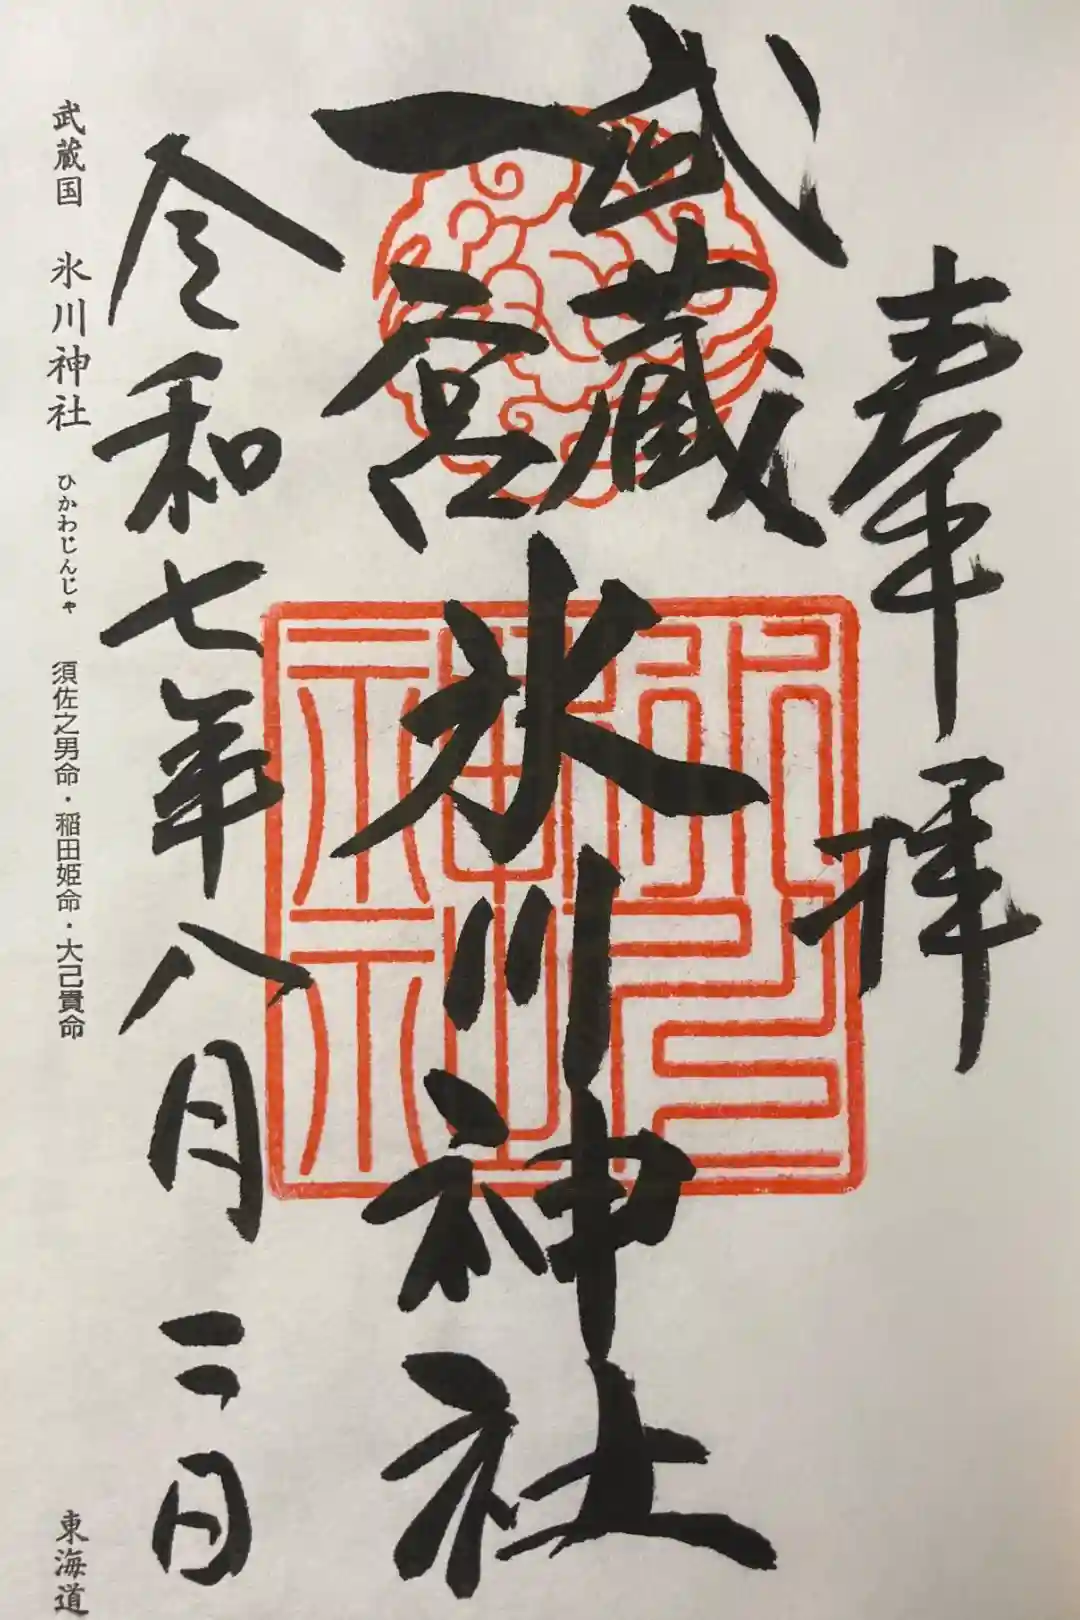 奉拝
武蔵
一宮
氷川神社
令和七年八月二日
武蔵国 氷川神社 ひかわじんじゃ 須佐之男命・稲田姫命・大己貴命 東海道
氷川
神社